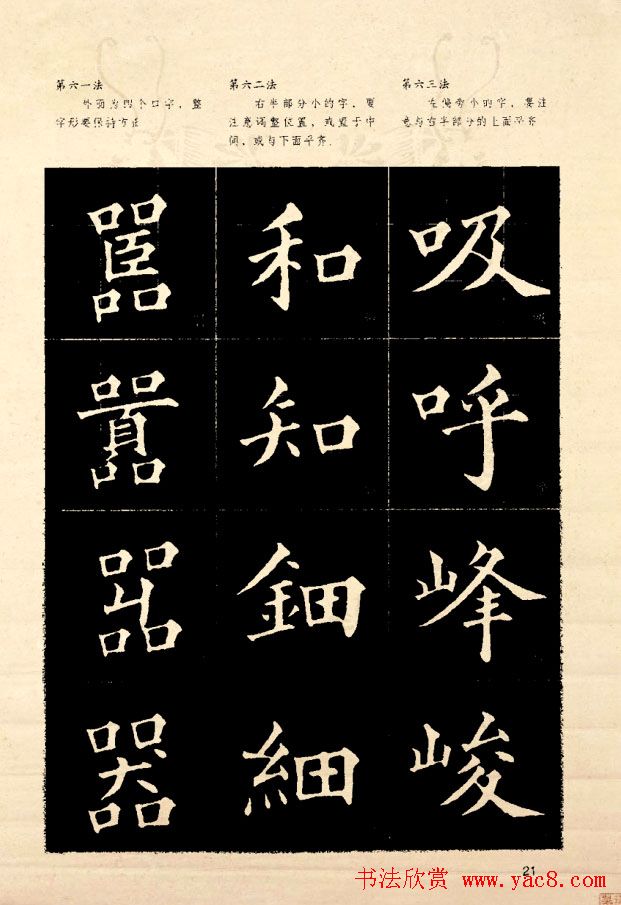 第六一法
外面为四个口字，整
字形要保持方正
第六二法
右半部分小的字，要
注意调整位置，或置于中
间，或与下面平齐.
第六三法
左偏旁小的字，要注
意与右半部分的上面平齐
嚚 和 吸
囂 知 呼
嘂 鈿 峰
器 細 峻
21
书法欣赏 www.yac8.com